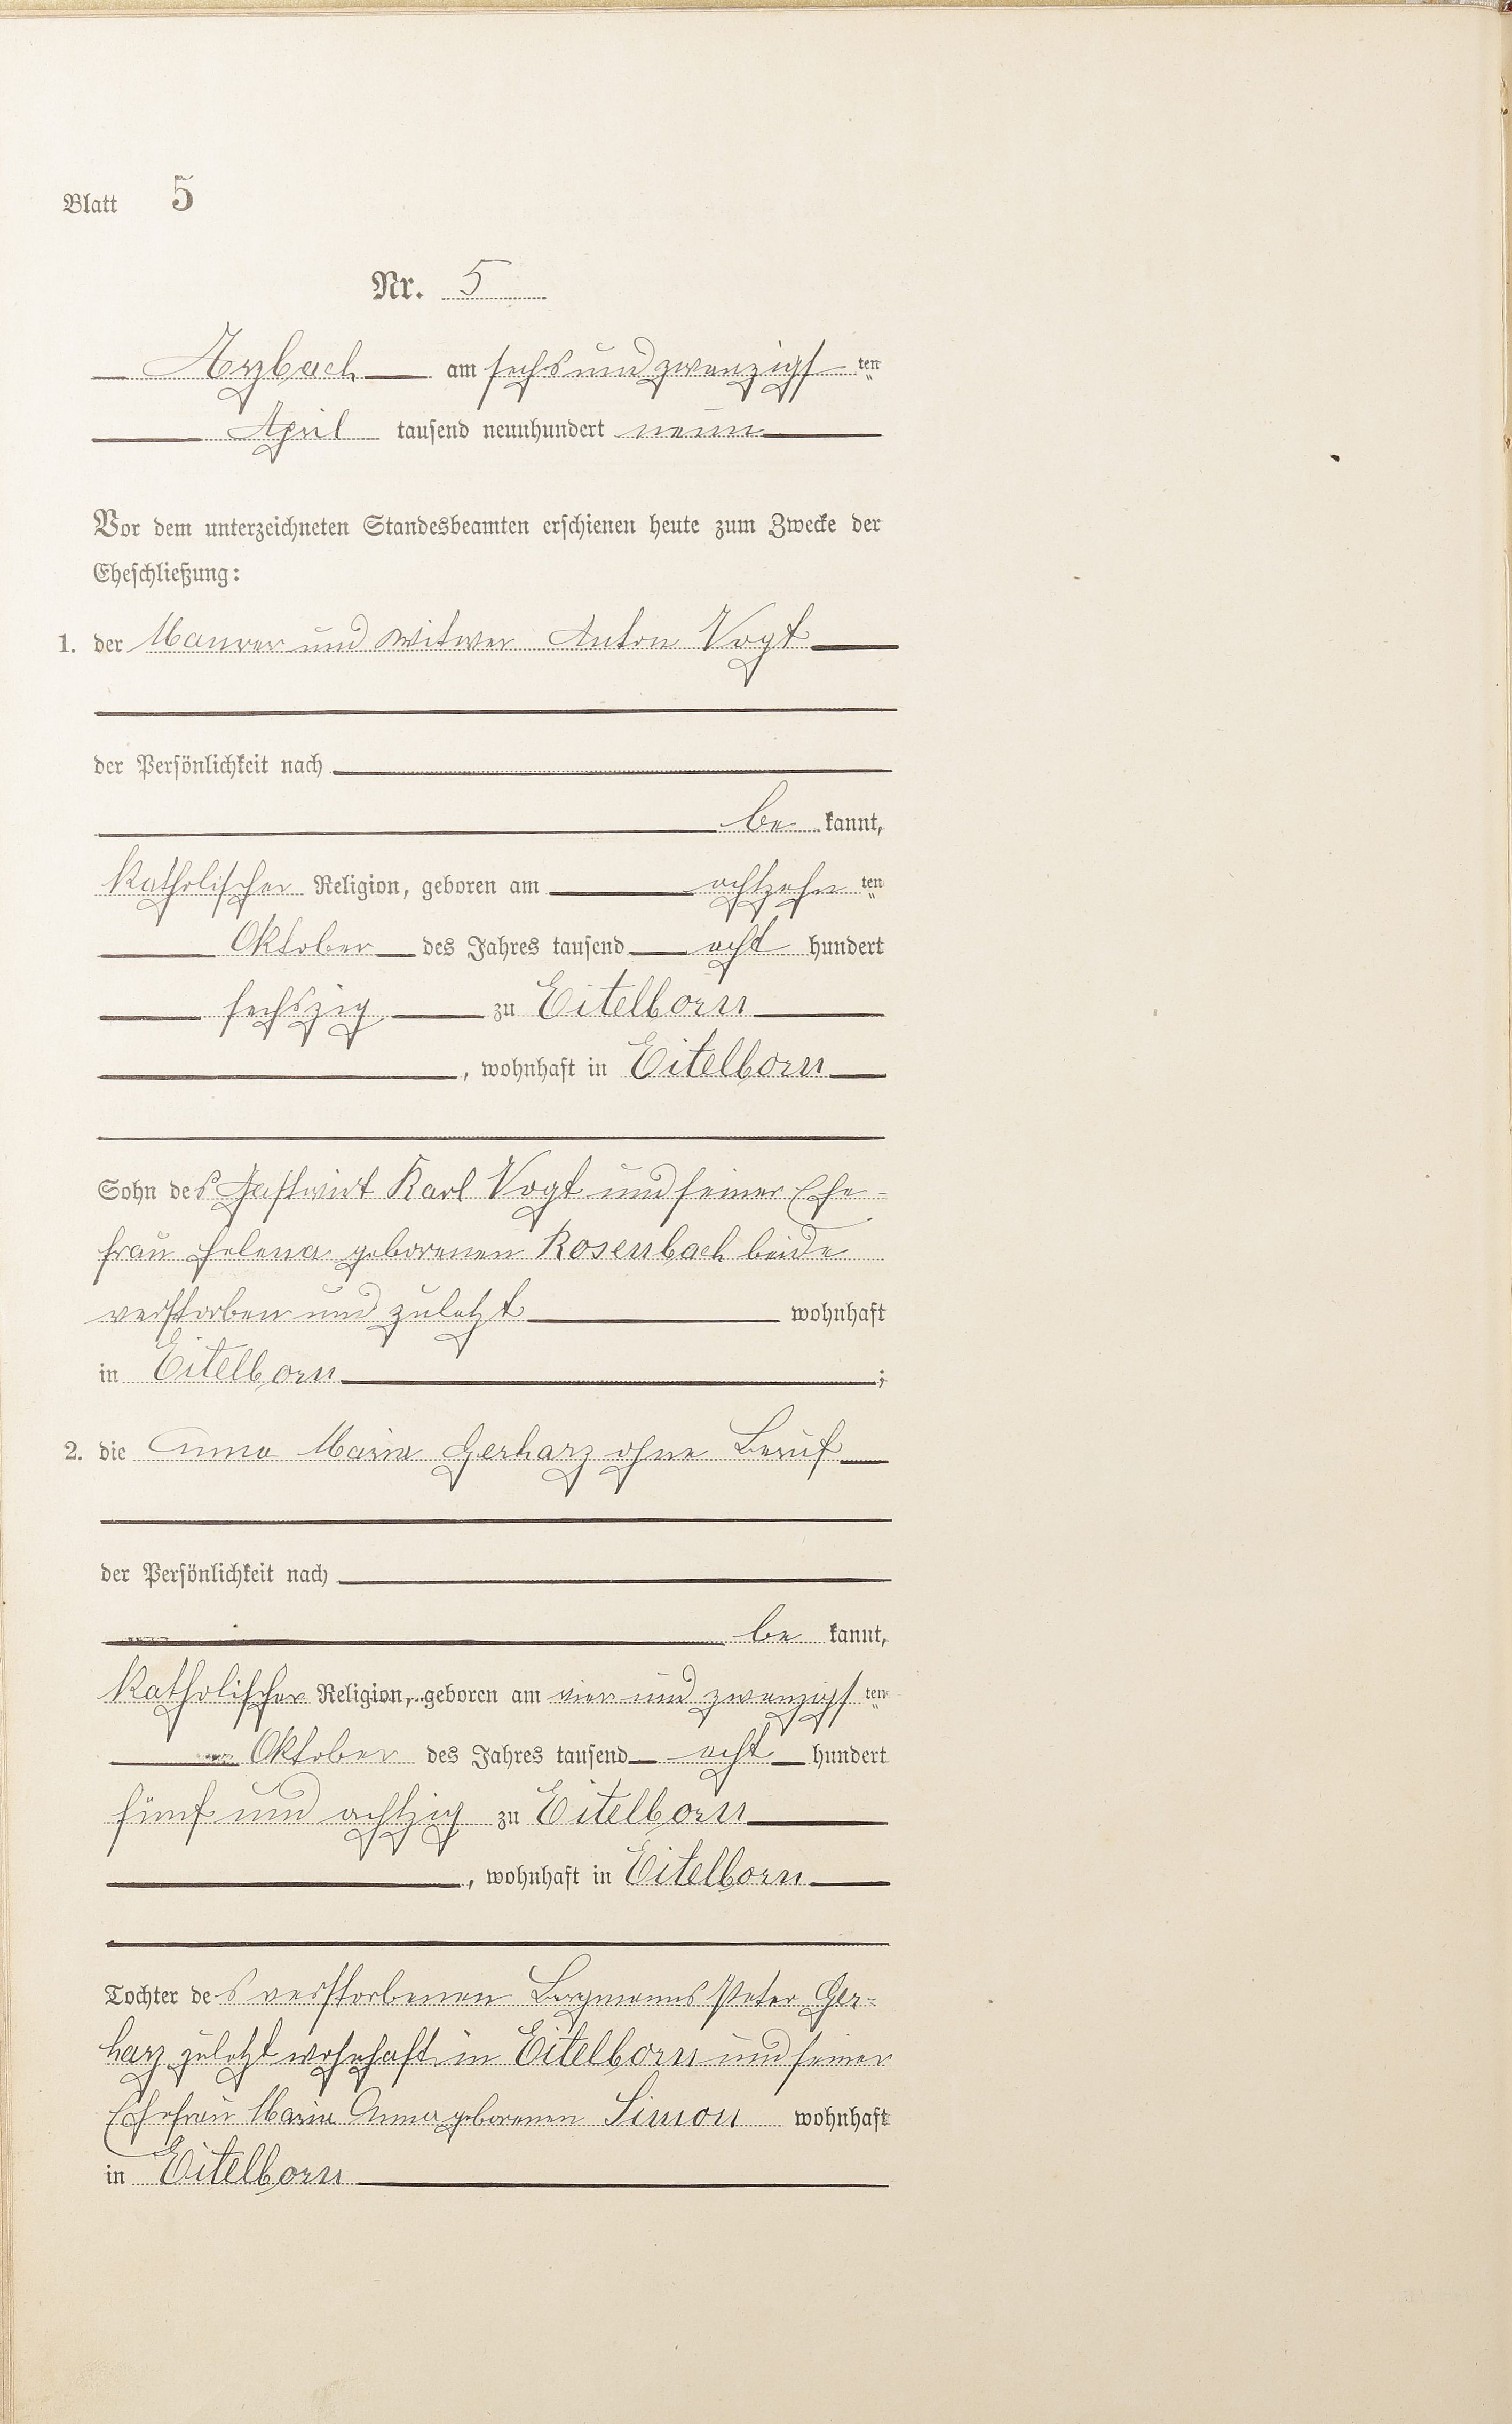 Blatt 5
Nr. 5
Arzbach am sechsundzwanzigsten
April tausend neunhundert neun
Vor dem unterzeichneten Standesbeamten erschienen heute zum Zwecke der
Eheschließung:
1. der Maurer und Witwer Anton Vogt
der Persönlichkeit nach
be kannt,
Katholischer Religion, geboren am achtzehn ten
Oktober des Jahres tausend acht hundert
sechszig zu Eitelborn
, wohnhaft in Eitelborn
Sohn des Gastwirt Karl Vogt und seiner Ehe-
frau Helena geborenen Rosenbach beide
verstorben und zuletzt wohnhaft
in Eitelborn ;
2. die Anna Maria Gerharz ohne Beruf
der Persönlichkeit nach
be kannt,
Katholischer Religion, geboren am vier und zwanzigsten
Oktober des Jahres tausend acht hundert
fünf und achtzig zu Eitelborn
, wohnhaft in Eitelborn
Tochter des verstorbenen Bergmanns Peter Ger-
harz zuletzt wohnhaft in Eitelborn und seiner
Ehefrau Maria Anna geborenen Simon wohnhaft
in Eitelborn